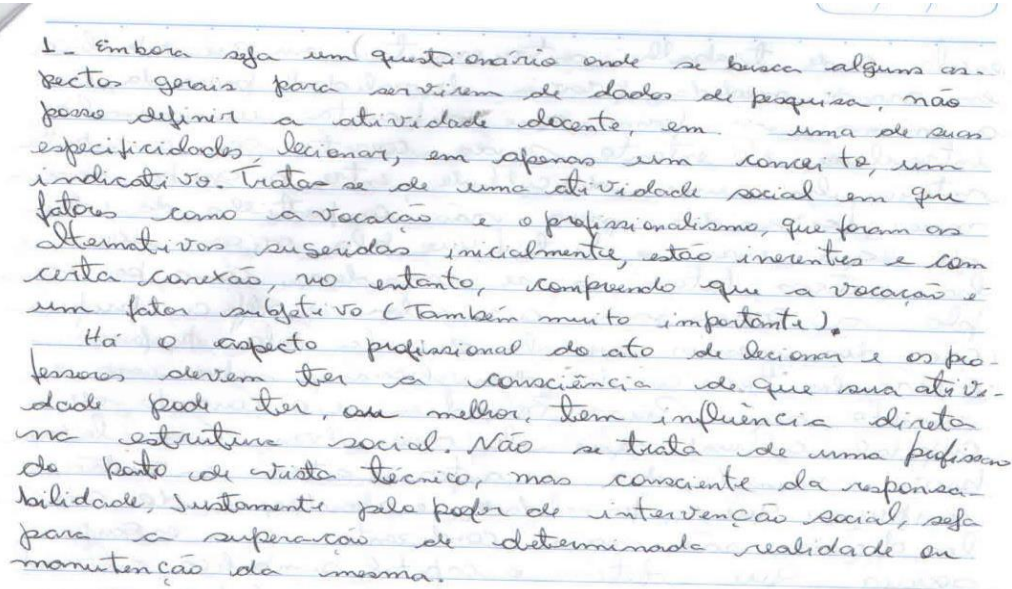 1- Embora seja um questionário onde se busca alguns as-
pectos gerais para servirem de dados de pesquisa, não
posso definir a atividade docente, em uma de suas
especificidades, lecionar, em apenas um conceito, um
indicativo. Trata-se de uma atividade social em que
fatores como a vocação e o profissionalismo, que foram as
alternativas sugeridas inicialmente, estão inerentes e com
certa conexão, no entanto, compreendo que a vocação é
um fator subjetivo (Também muito importante).
Há o aspecto profissional do ato de lecionar e os pro-
fessores devem ter a consciência de que sua ativi-
dade pode ter, ou melhor, tem influência direta
na estrutura social. Não se trata de uma profissão
do ponto de vista técnico, mas consciente da responsa-
bilidade, Justamente pelo poder de intervenção social, seja
para a superação de determinada realidade ou
manutenção da mesma.